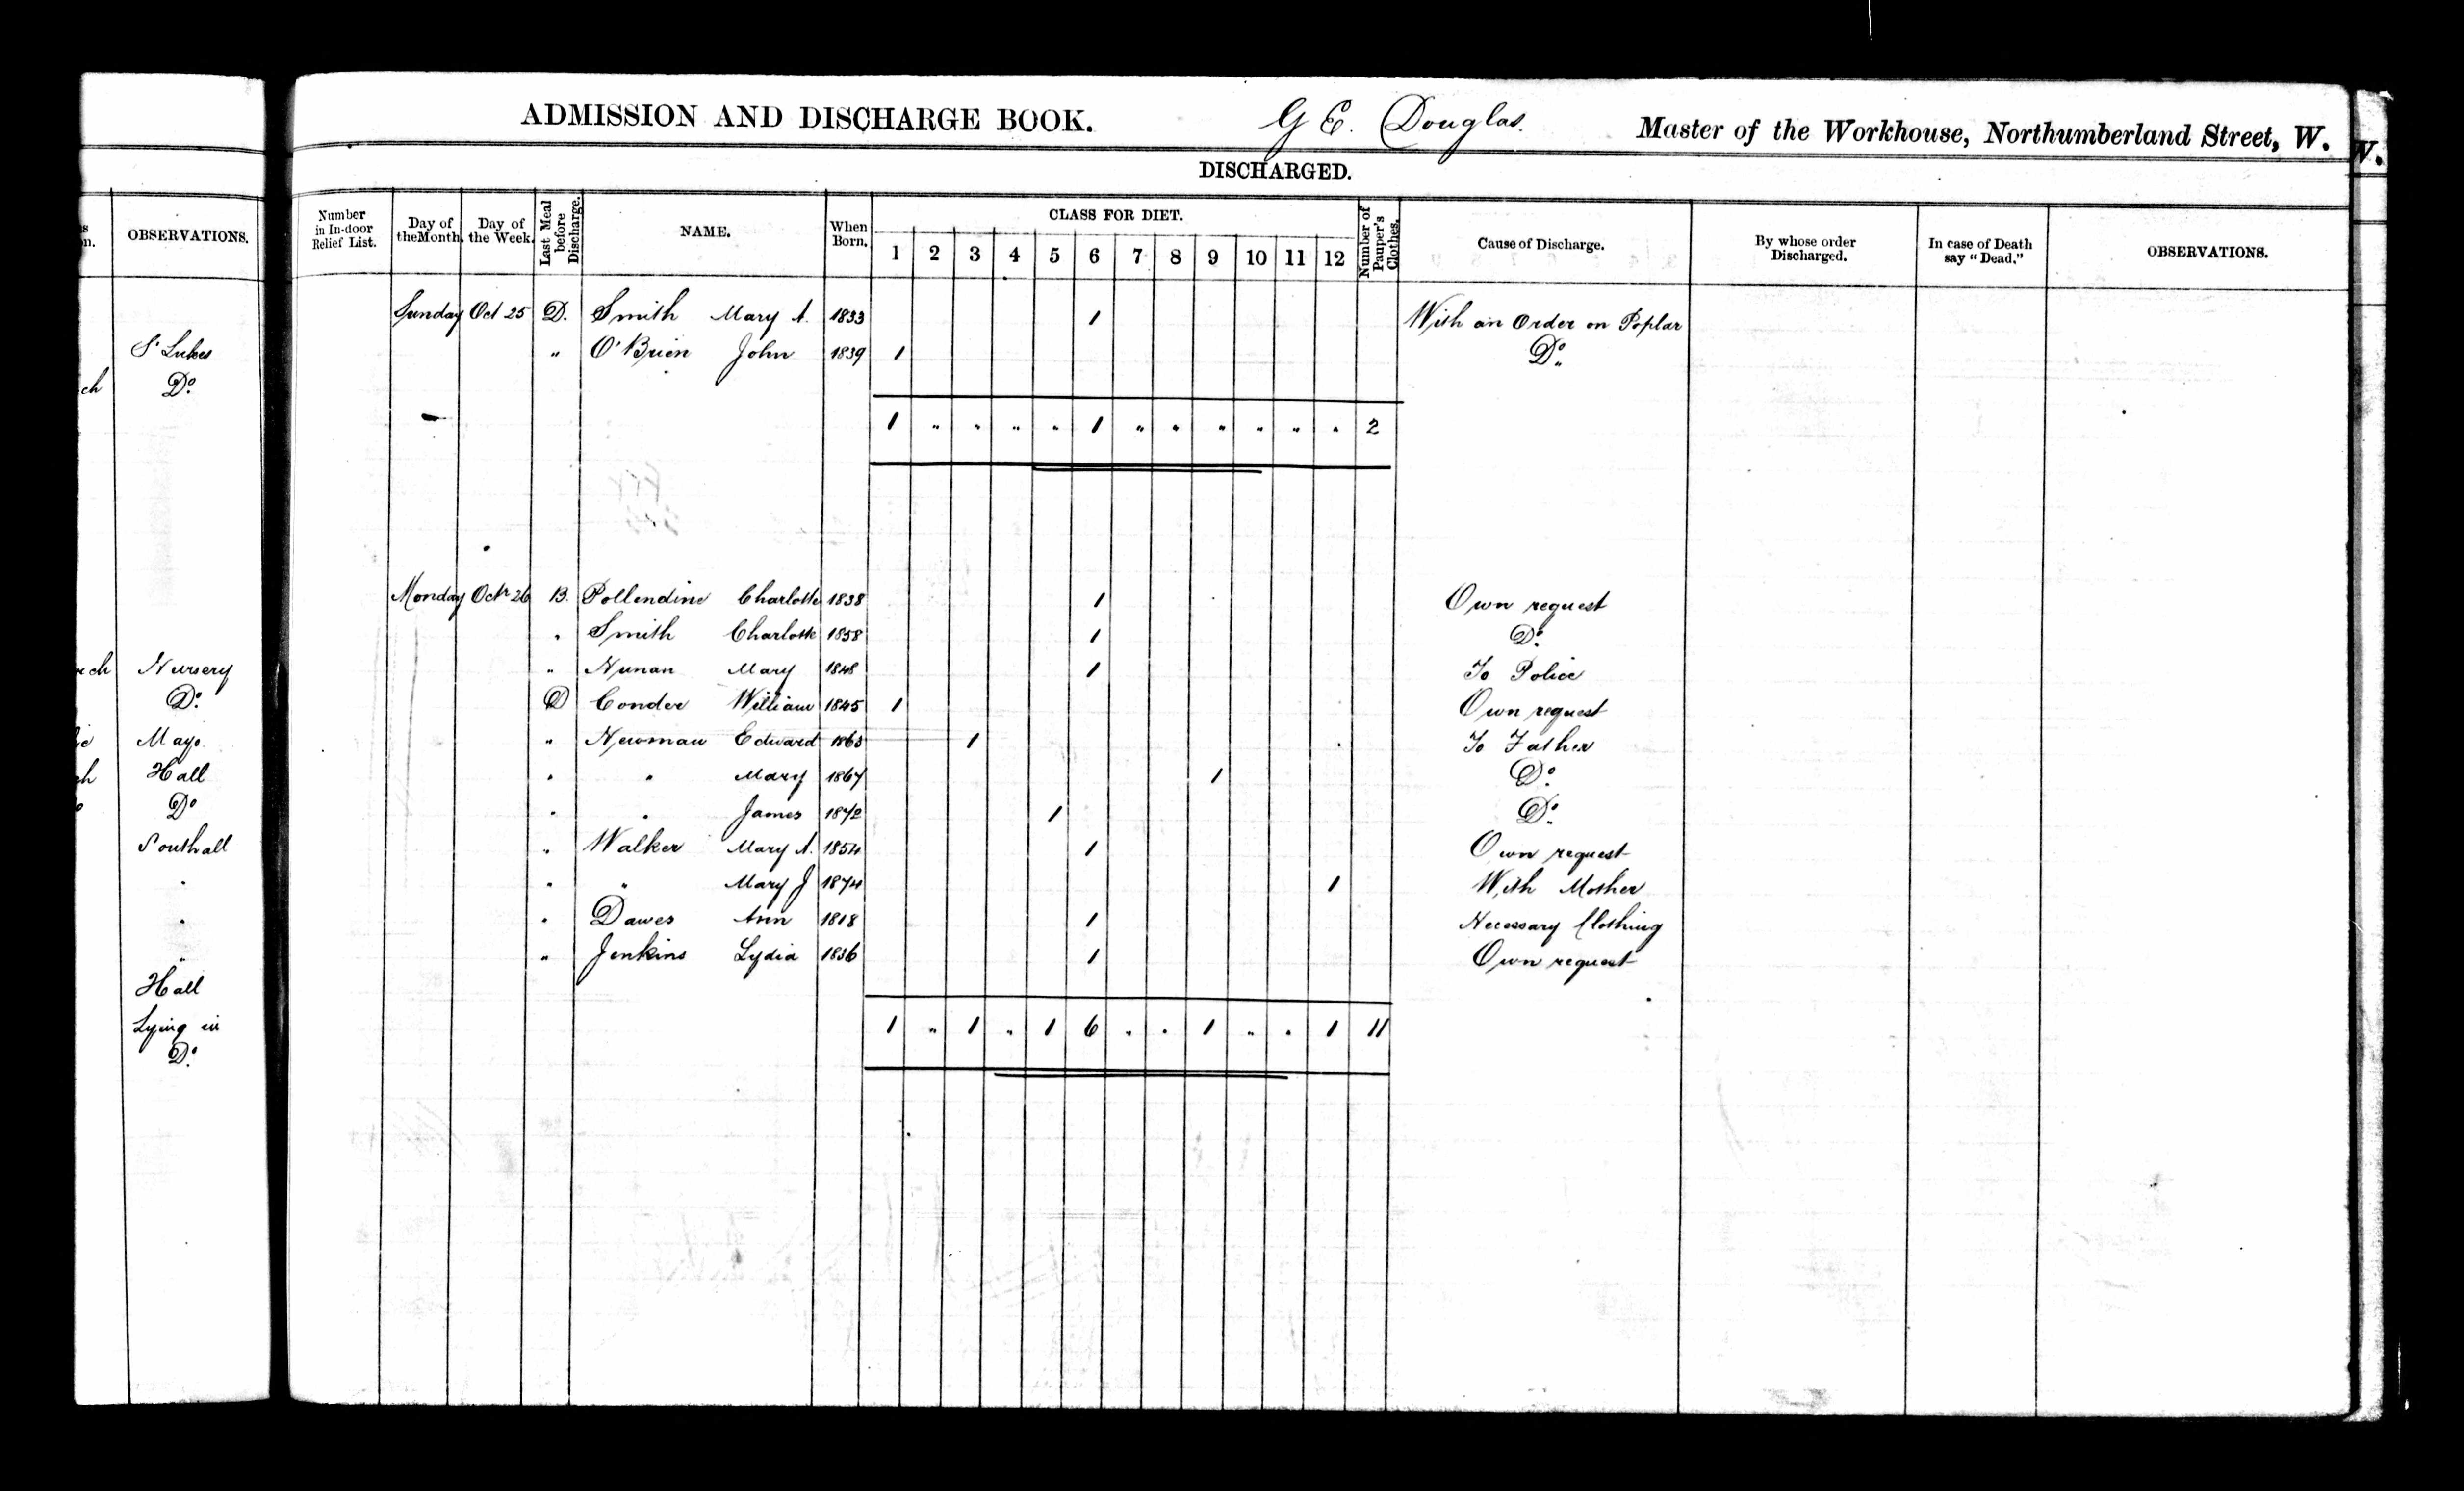 ADMISSION AND DISCHARGE BOOK. G E. Douglas. Master of the Workhouse, Northumberland Street, W.
W.
DISCHARGED.
OBSERVATIONS.
Number in In-door Relief List. Day of the Month. Day of the Week. Last Meal before Discharge. NAME. When Born. CLASS FOR DIET. Number of Pauper's Clothes. Cause of Discharge. By whose order Discharged. In case of Death say "Dead." OBSERVATIONS.
1 2 3 4 5 6 7 8 9 10 11 12
Sunday Oct 25 D. Smith Mary A. 1833 1 With an Order on Poplar
S' Lukes
" O'Brien John 1839 1 Do
ch Do
1 " " " " 1 " " " " " " 2
Monday Octr 26 B. Pollendine Charlotte 1838 1 Own request
" Smith Charlotte 1858 1 Do
ch Nursery
" Nunan Mary 1848 1 To Police
Do
D Conder William 1845 1 Own request
Mayo
" Newman Edward 1 To Father
Hall
" " Mary 1867 1 Do
Do
" " James 1872 1 Do
Southall
" Walker Mary A. 1854 1 Own request
"
" " Mary J 1874 1 With Mother
"
" Dawes Ann 1818 1 Necessary Clothing
"
" Jenkins Lydia 1836 1 Own request
Hall
Lying in
1 " 1 " 1 6 " " 1 " " 1 11
Do